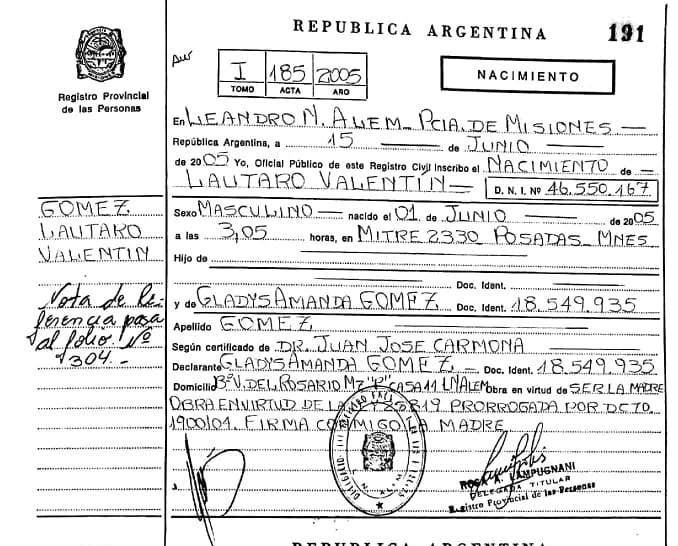 REPUBLICA ARGENTINA
191
Registro Provincial
de las Personas
I 185 2005
TOMO ACTA AÑO
NACIMIENTO
En LEANDRO N. ALEM - PCIA. DE MISIONES —
República Argentina, a 15 — de JUNIO —
de 2005 Yo, Oficial Público de este Registro Civil Inscribo el NACIMIENTO de —
LAUTARO VALENTIN — D. N. I. Nº 46.550.167
GOMEZ
LAUTARO
VALENTIN
Sexo MASCULINO — nacido el 01 de JUNIO — de 2005
a las 3,05 horas, en MITRE 2330 POSADAS MNES
Hijo de —
— Doc. Ident. —
y de GLADYS AMANDA GOMEZ Doc. Ident. 18.549.935
Apellido GOMEZ
Nota de Re
ferencia pasa
al folio Nº
304.-
Según certificado de DR. JUAN JOSE CARMONA
Declarante GLADYS AMANDA GOMEZ — Doc. Ident. 18.549.935
Domicilio Bº V. DEL ROSARIO MZ "P" CASA 11 LNALEM Obra en virtud de SER LA MADRE
OBRA EN VIRTUD DE LA 819 PRORROGADA POR DCTO.
1900/01. FIRMA CONMIGO LA MADRE
ROSA A. LAMPUGNANI
DELEGADA TITULAR
Registro Provincial de las Personas
REPUBLICA ARGENTINA